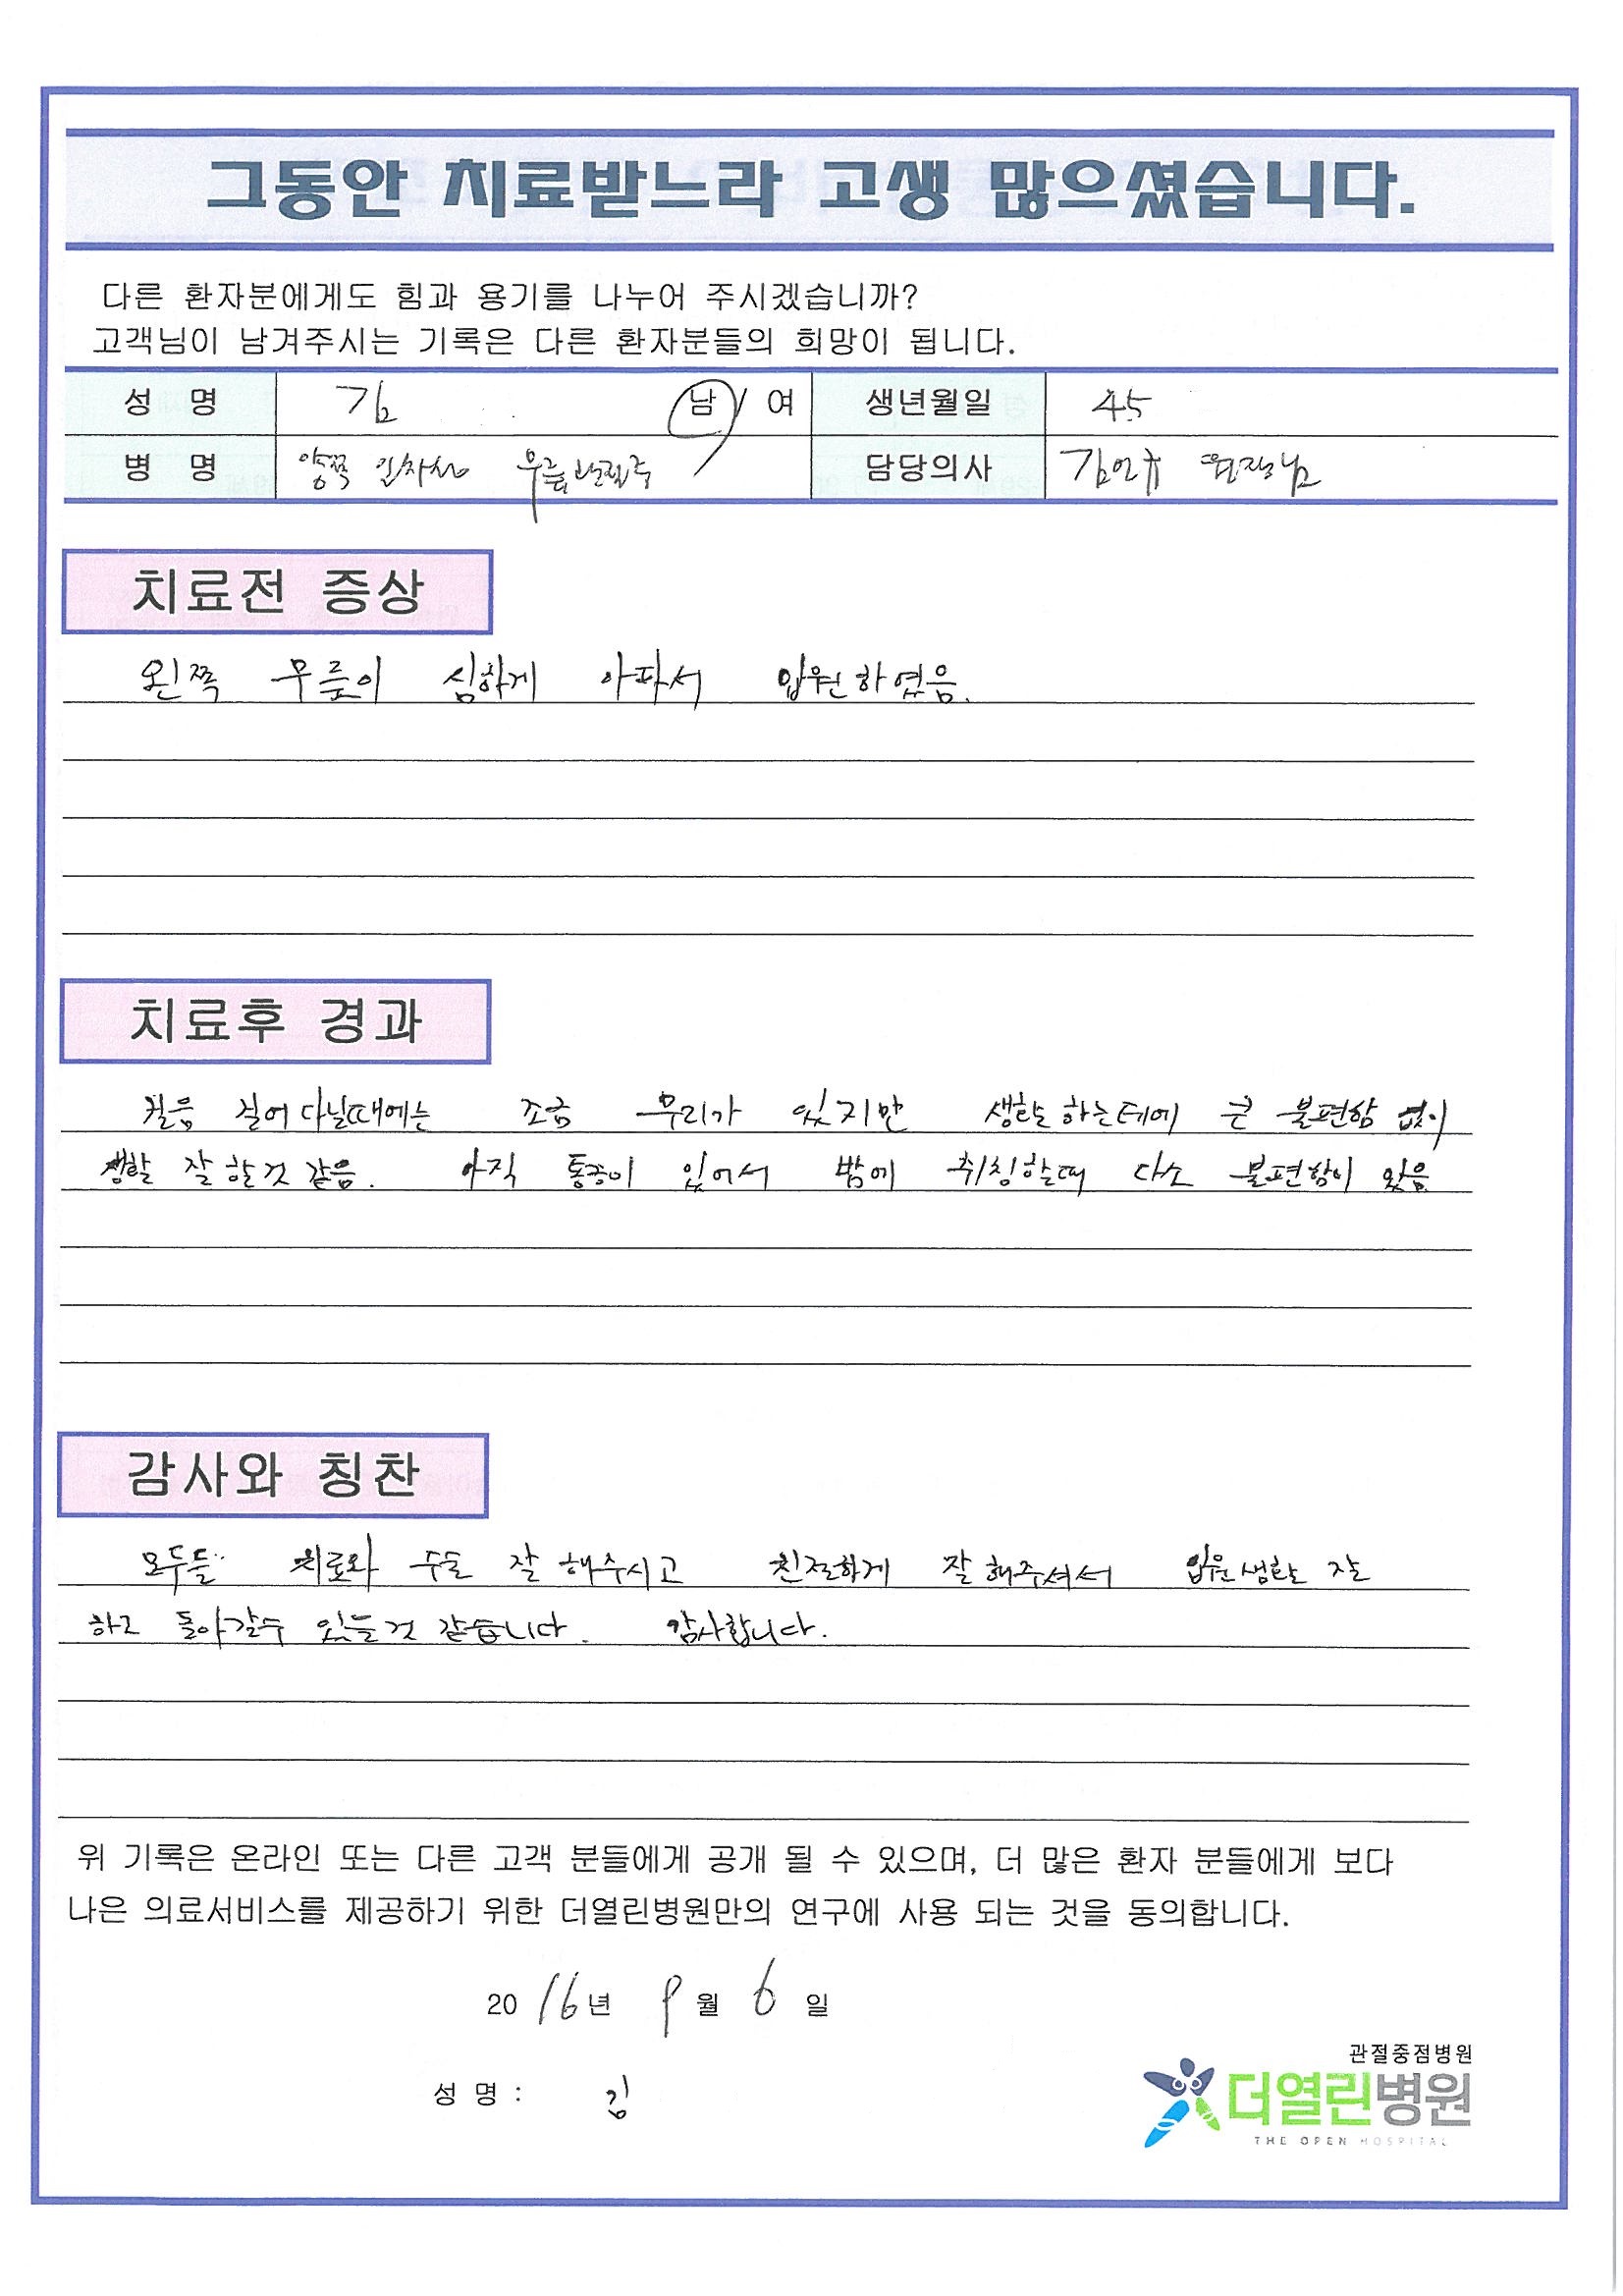 그동안 치료받느라 고생 많으셨습니다.
다른 환자분에게도 힘과 용기를 나누어 주시겠습니까?
고객님이 남겨주시는 기록은 다른 환자분들의 희망이 됩니다.
성 명 김 남 / 여 생년월일 45
병 명 양쪽 무릎관절증 담당의사 김연규 원장님
치료전 증상
왼쪽 무릎이 심하게 아파서 입원하였음.
치료후 경과
걸음 걸어 다닐때에는 조금 무리가 있지만 생활하는데에 큰 불편함 없이
생활 잘 할것 같음. 아직 통증이 있어서 밤에 취침할때 다소 불편함이 있음
감사와 칭찬
모두들 치료와 수술 잘 해주시고 친절하게 잘 해주셔서 입원생활 잘
하고 돌아갈수 있는것 같습니다. 감사합니다.
위 기록은 온라인 또는 다른 고객 분들에게 공개 될 수 있으며, 더 많은 환자 분들에게 보다
나은 의료서비스를 제공하기 위한 더열린병원만의 연구에 사용 되는 것을 동의합니다.
2016년 9월 6일
성 명 : 김
관절중점병원
더열린병원
THE OPEN HOSPITAL